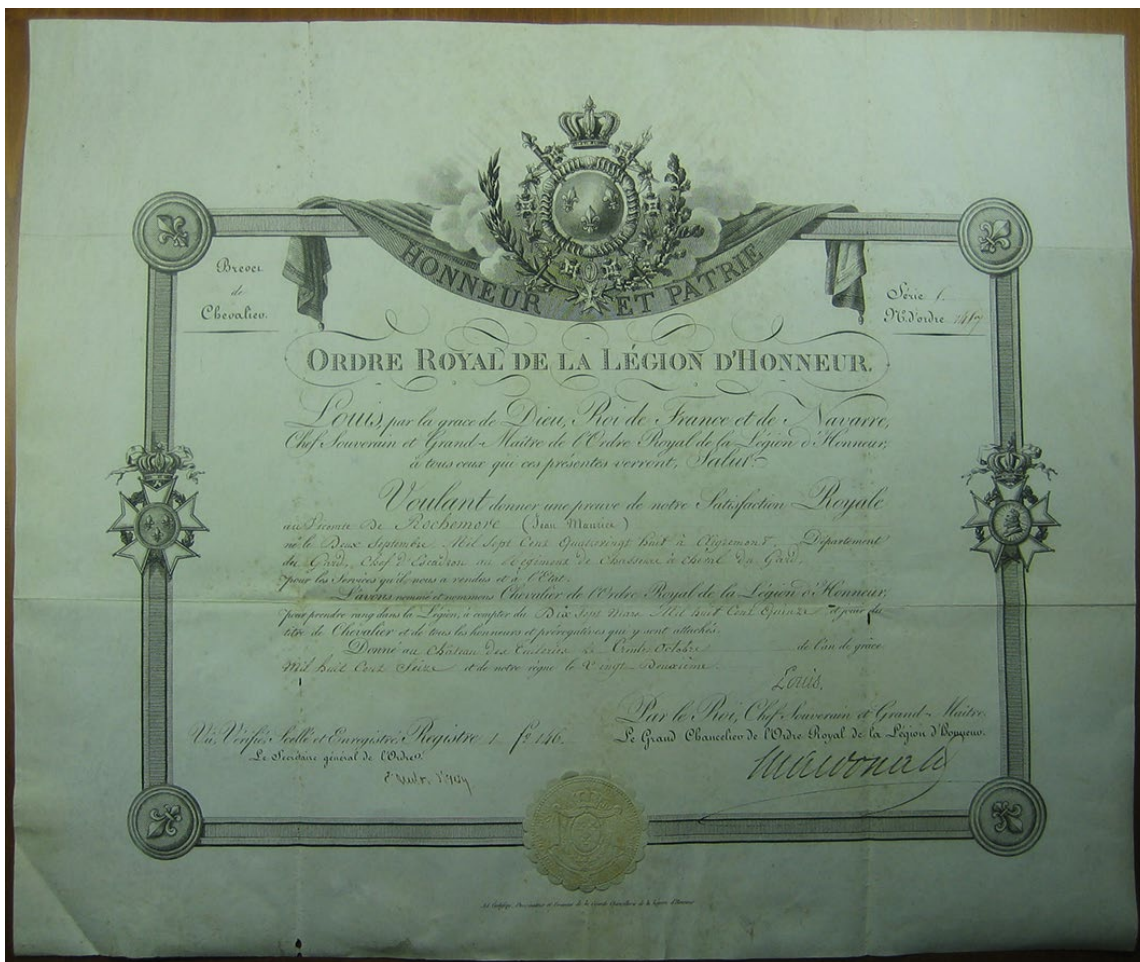 HONNEUR ET PATRIE
Brevet
de
Chevalier.
Série 1.
N.º d'ordre
ORDRE ROYAL DE LA LÉGION D'HONNEUR.
Louis, par la grace de Dieu, Roi de France et de Navarre,
Chef Souverain et Grand-Maître de l'Ordre Royal de la Légion d'Honneur,
à tous ceux qui ces présentes verront, Salut.
Voulant donner une preuve de notre Satisfaction Royale
au Vicomte De Rochemore (Jean Maurice)
né le Deux Septembre Mil Sept Cent Quatrevingt huit à Aigremont, Département
du Gard, Chef d'Escadron au Régiment de Chasseurs à cheval du Gard,
pour les Services qu'il nous a rendus et à l'Etat.
L'avons nommé et nommons Chevalier de l'Ordre Royal de la Légion d'Honneur,
pour prendre rang dans la Légion, à compter du Dix Sept Mars Mil huit Cent Quinze et jouir du
titre de Chevalier et de tous les honneurs et prérogatives qui y sont attachés.
Donné au Château des Tuileries Le Octobre de l'an de grâce
Mil huit Cent Seize et de notre règne le Vingt Deuxième.
Louis.
Par le Roi, Chef Souverain et Grand-Maître,
Le Grand Chancelier de l'Ordre Royal de la Légion d'Honneur.
Vu, Vérifié, Scellé et Enregistré, Registre 1. f.º 146.
Le Secrétaire général de l'Ordre,
Macdonald